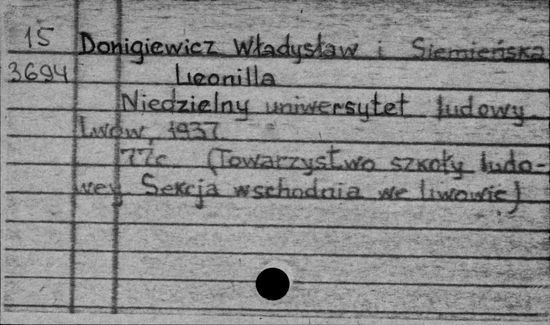 15 Donigiewicz Władysław i Siemieńska
3694 Leonilla
Niedzielny uniwersytet ludowy
Lwów, 1937
77c. (Towarzystwo szkoły ludo-
wej Sekcja wschodnia we Lwowie)